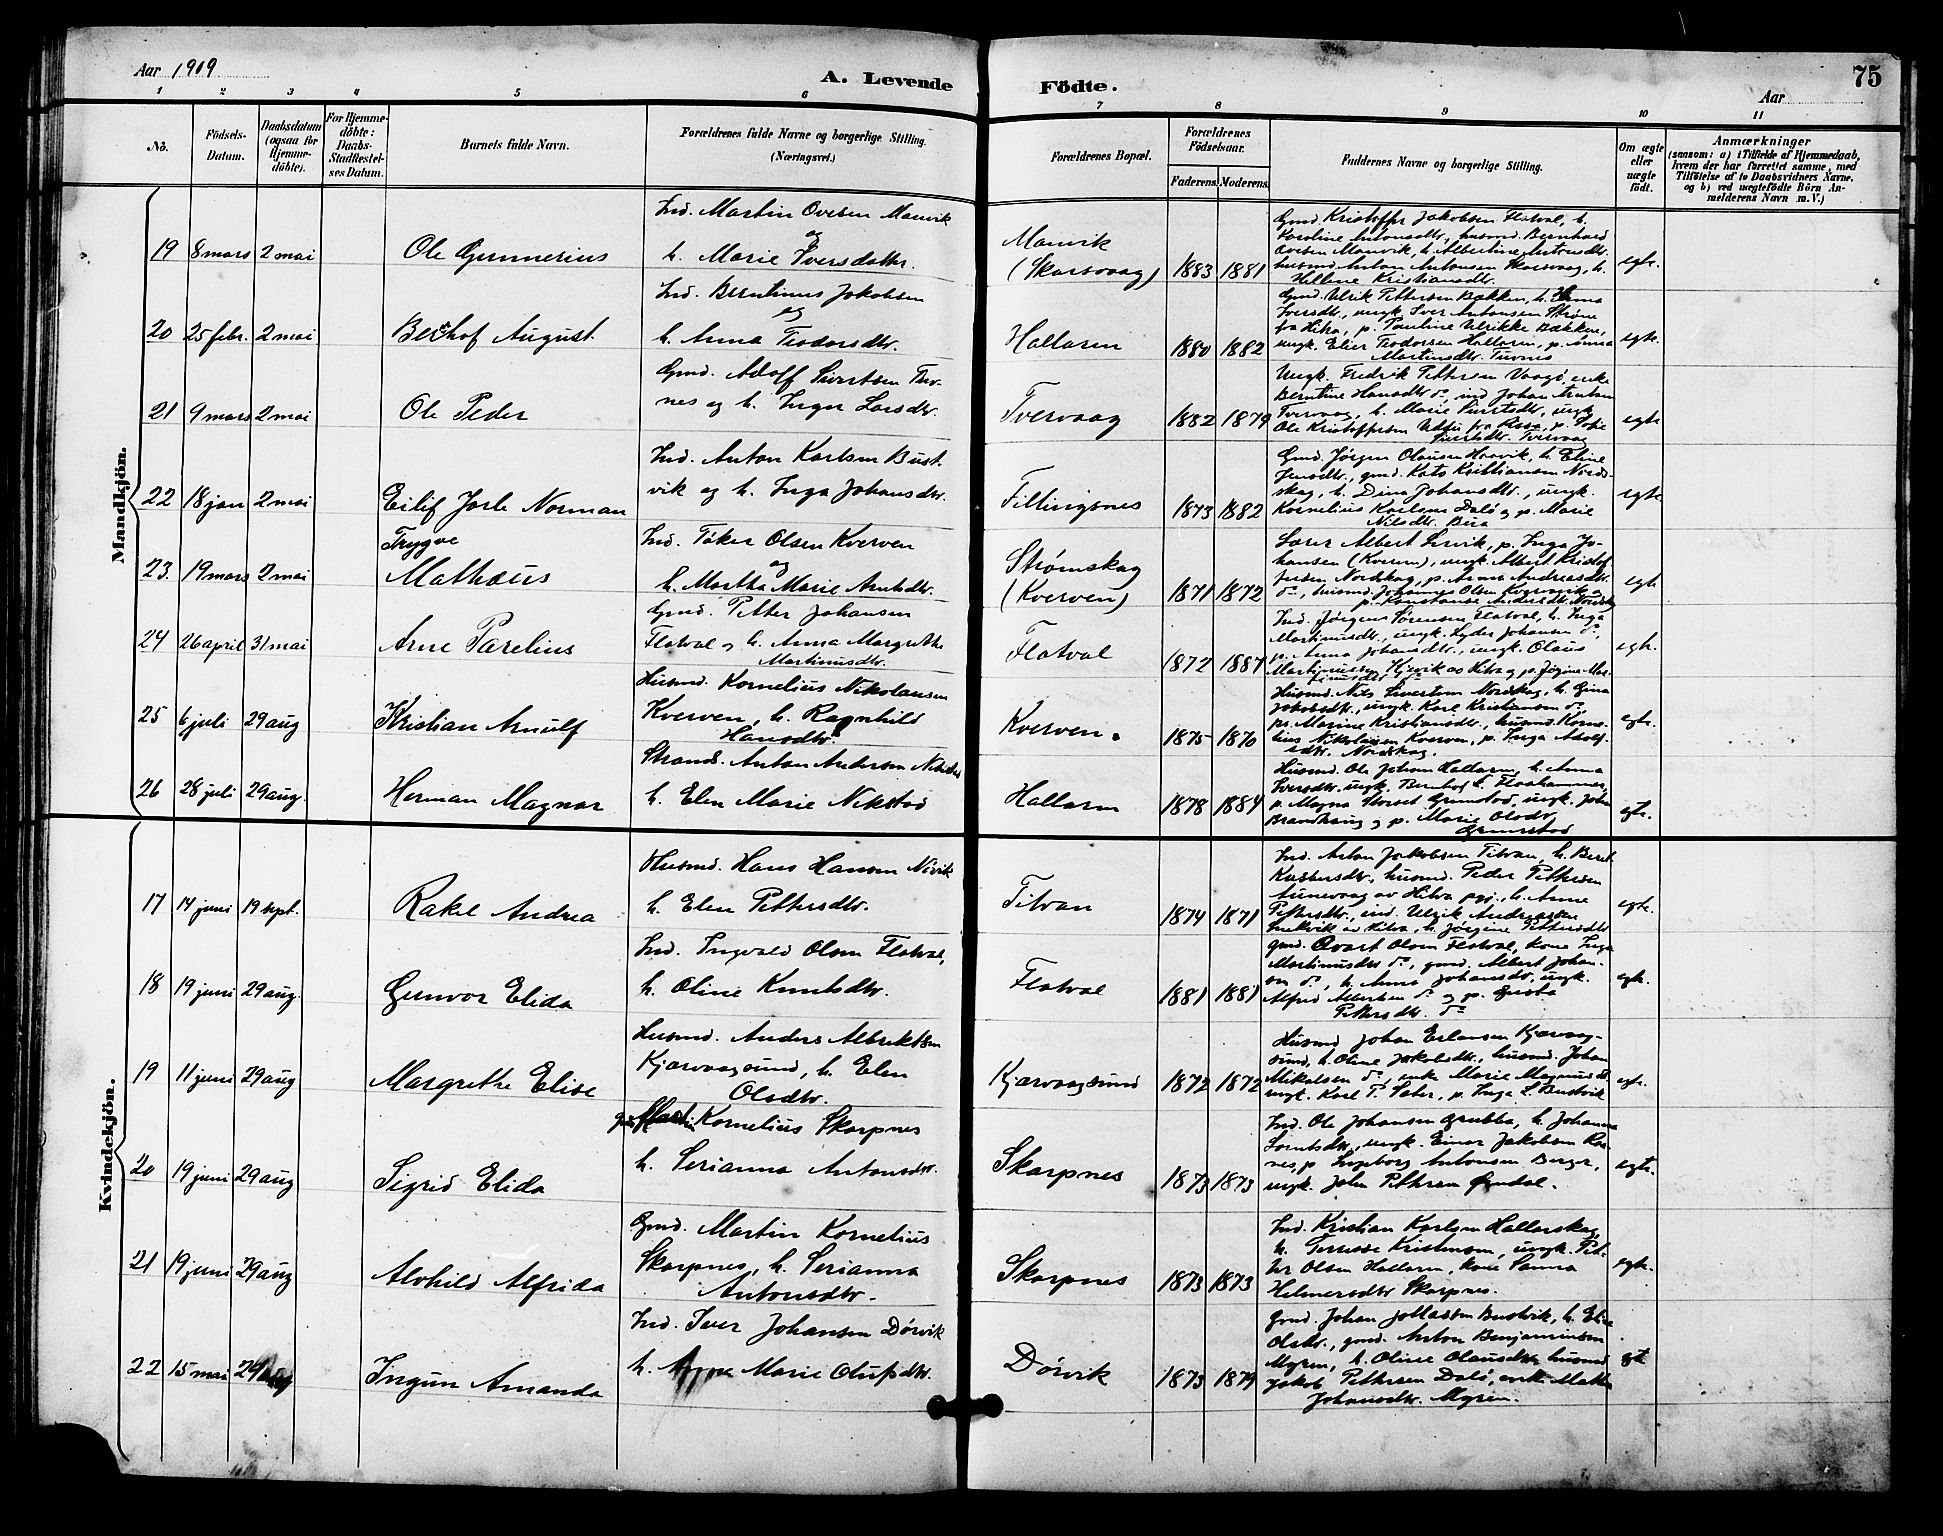 Aar 1909
A. Levende Födte.
75
Aar
1 2 3 4 5 6 7 8 9 10 11
No.
Födsels-Datum.
Daabsdatum (ogsaa for Hjemme-döbte).
For Hjemme-döbte: Daabs-Stadfæstel-ses Datum.
Barnets fulde Navn.
Forældrenes fulde Navne og borgerlige Stilling. (Næringsvei.)
Forældrenes Bopæl.
Forældrenes Födselsaar.
Faderens. Moderens.
Faddernes Navne og borgerlige Stilling.
Om ægte eller uægte födt.
Anmærkninger
(sansom: a) i Tilfælde af Hjemmedaab, hvem der har forrettet samme, med Tilföielse af to Daabsvidners Navne. og b) ved uægtefödte Börn An-melderens Navn m. V.)
Mandkjön.
19 8 mars 2 mai
Ole Gunnerius
Ind. Martin Ovesen Manvik
og
h. Marie Iversdatter.
Manvik
(Skarsvaag)
1883 1881
Gmd. Kristoffer Jakobsen Flatval, h.
Karoline Antonsdtr, husmd Bernhard
Ovesen Manvik, h. Albertine Antonsdtr.
husmd Anton Antonsen Skarsvaag, h.
Hellene Kristiansdtr.
egte.
20 25 febr. 2 mai
Bernhof August.
Ind. Berntinus Jakobsen
og
h. Anna Teodorsdtr.
Hallaren
1880 1882
Gmd. Ulrik Pettersen Bakken, h. Anna
Iversdtr, ungk. Iver Antonsen Strøne
fra Hitra, p. Pauline Ulrikke Bakken,
ungk. Elier Teodorsen Hallaren, p. Anna
Martinsdtr. Turnes
egte.
21 9 mars 2 mai
Ole Peder
Gmd. Adolf Sivertsen Tur-
nes og h. Inger Larsdtr.
Tvervaag
1882 1879
Ungk. Fredrik Pettersen Vaagø, enke
Berntine Hansdtr do, ind Johan
Tvervaag, h. Marie Sivertsdtr, ungk
Ole Kristoffersen fra p. Sofie
Sivertsdtr. Tvervaag
egte
22 18 jan 2 mai
Eilif Jarle Norman
Ind. Anton Karlsen Bust-
vik og h. Inga Johansdtr.
Fillingsnes
1873 1882
Gmd. Jørgen Olausen Haavik, h. Eline
Jensdtr., gmd. Kristiansen Nord-
skag, h. Dina Johansdtr., ungk.
Kornelius Karlsen Dalø og p. Marie
Nilsdtr.
egte
23. 19 mars 2 mai
Trygve
Mathæus
Ind. Tøker Olsen Kverven
og
h. Martha Marie Arntsdtr.
Strømskag
(Kverven)
1871 1872
Lærer Albert p. Inga Jo-
hansen (Kverven), ungk. Albert Kristof-
fersen Nordskag, p. Anna Andreasdtr.
do, husmd. Johannes Olsen
p. Konstanse Andersdtr. Nordskag
egte
24 26 april 31 mai
Arne Parelius
Gmd. Petter Johansen
Flatval og h. Anna Margrethe
Martinusdtr.
Flatval
1872 1887
Ind. Jørgen Sørensen Flatval, h. Inga
Martinusdtr., ungk. Lyder Johansen do,
p. Anna Johansdtr., ungk. Olaus
Martinussen av Hitra og p. Jøgine Mar-
tinusdtr do
egte.
25 6 juli 29 aug
Kristian Arnulf
Husmd. Kornelius Nikolausen
Kverven, h. Ragnhild
Hansdtr.
Kverven.
1875 1870
Husmd. Nils Sivertsen Nordskag, h. Gina
Jakobsdtr., ungk. Karl Kristiansen do,
p. Marine Kristiansdtr., husmd. Korne-
lius Nikolausen Kverven, p. Inga Adolf-
sdtr. Nordskag.
egte.
26 28 juli 29 aug.
Herman Magnar
Strands. Anton Andersen
h. Elen Marie Nekstad
Hallaren
1878 1884
Husmd. Ole Johan Hallaren, h. Anna
Iversdtr. ungk. Bernhof E. Flashammer,
p. Magna Grimstad, ungk. John
Brandhaug og p. Marie Olsdtr.
Grimstad
egte.
Kvindekjön.
17 14 juni 19 sept.
Rakel Andrea
Husmd. Hans Hansen
h. Elen Pettersdtr.
Titran
1874 1871
Ind. Anton Jakobsen Titran, h. Beret
husmd. Peder Pettersen
Aunevaag av Hitra pgj, h. Anne
Pettersdtr., ind. Ulrik Andreassen
av Hitra, h. Jørgine Pettersdtr
egte.
18 19 juni 29 aug.
Gunvor Elida
Ind. Ingvald Olsen Flatval,
h. Oline Knutsdtr.
Flatval
1881 1881
gmd. Edvart Olsen Flatval, kone Inga
Martinusdtr do, gmd. Albert Johan-
sen do, h. Anna Johansdtr., ungk.
Alfred Albertsen do og p. Gusta
Pettersdtr. do
egte.
19 11 juni 29 aug
Margrethe Elise
Husmd. Anders Albriktsen
Kjærvaagsund, h. Elen
Olsdtr.
Kjærvaagsund
1872 1872
Husmd Johan Erlansen Kjærvaag-
sund, h. Oline Jakobsdtr., husmd. Johan
Mikalsen do, enke Marie Magnusdtr
ungk. Karl P. Sæter, p. Inga L. Bustvik
egte.
20 19 juni 29 aug
Sigrid Elida
Martin Kornelius Skarpnes
h. Serianna Antonsdtr.
Skarpnes
1873 1873
Ind. Ole Johansen Grubba, h. Johanna
ungk. Einar Jakobsen
p. Ingeborg Antonsen Berge,
ungk. John Pettersen
egte.
21 19 juni 29 aug
Alvhild Alfrida
Gmd. Martin Kornelius
Skarpnes, h. Serianna
Antonsdtr.
Skarpnes
1873 1873
Ind. Kristian Karlsen Hallarskag,
h. Terresse Kristensen, ungk. Pet-
ter Olsen Hallaren, kone Sanna
Helmersdtr Skarpnes.
egte.
22 15 mai 29 aug
Ingun Amanda
Ind. Iver Johansen Dørvik
h. Anna Marie Olufsdtr.
Dørvik
1873 1879
gmd. Johan Bustvik, h. Elise
Olsdtr., gmd. Anton Benjaminsen
Myren, h. Oline Olausdtr., husmd
Jakob Pettersen Dalø, enke
Johansdtr. Myren.
egte